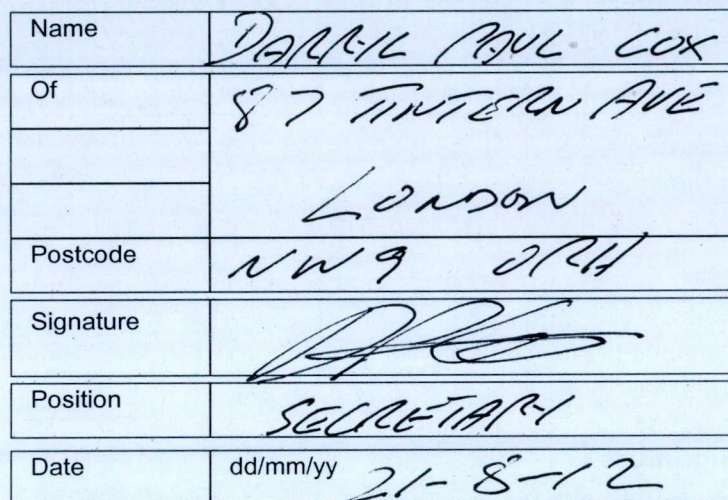 Name DARREL PAUL COX
Of 87 TINTERN AVE
LONDON
Postcode NW9 0RH
Signature
Position SECRETARY
Date dd/mm/yy 21-8-12